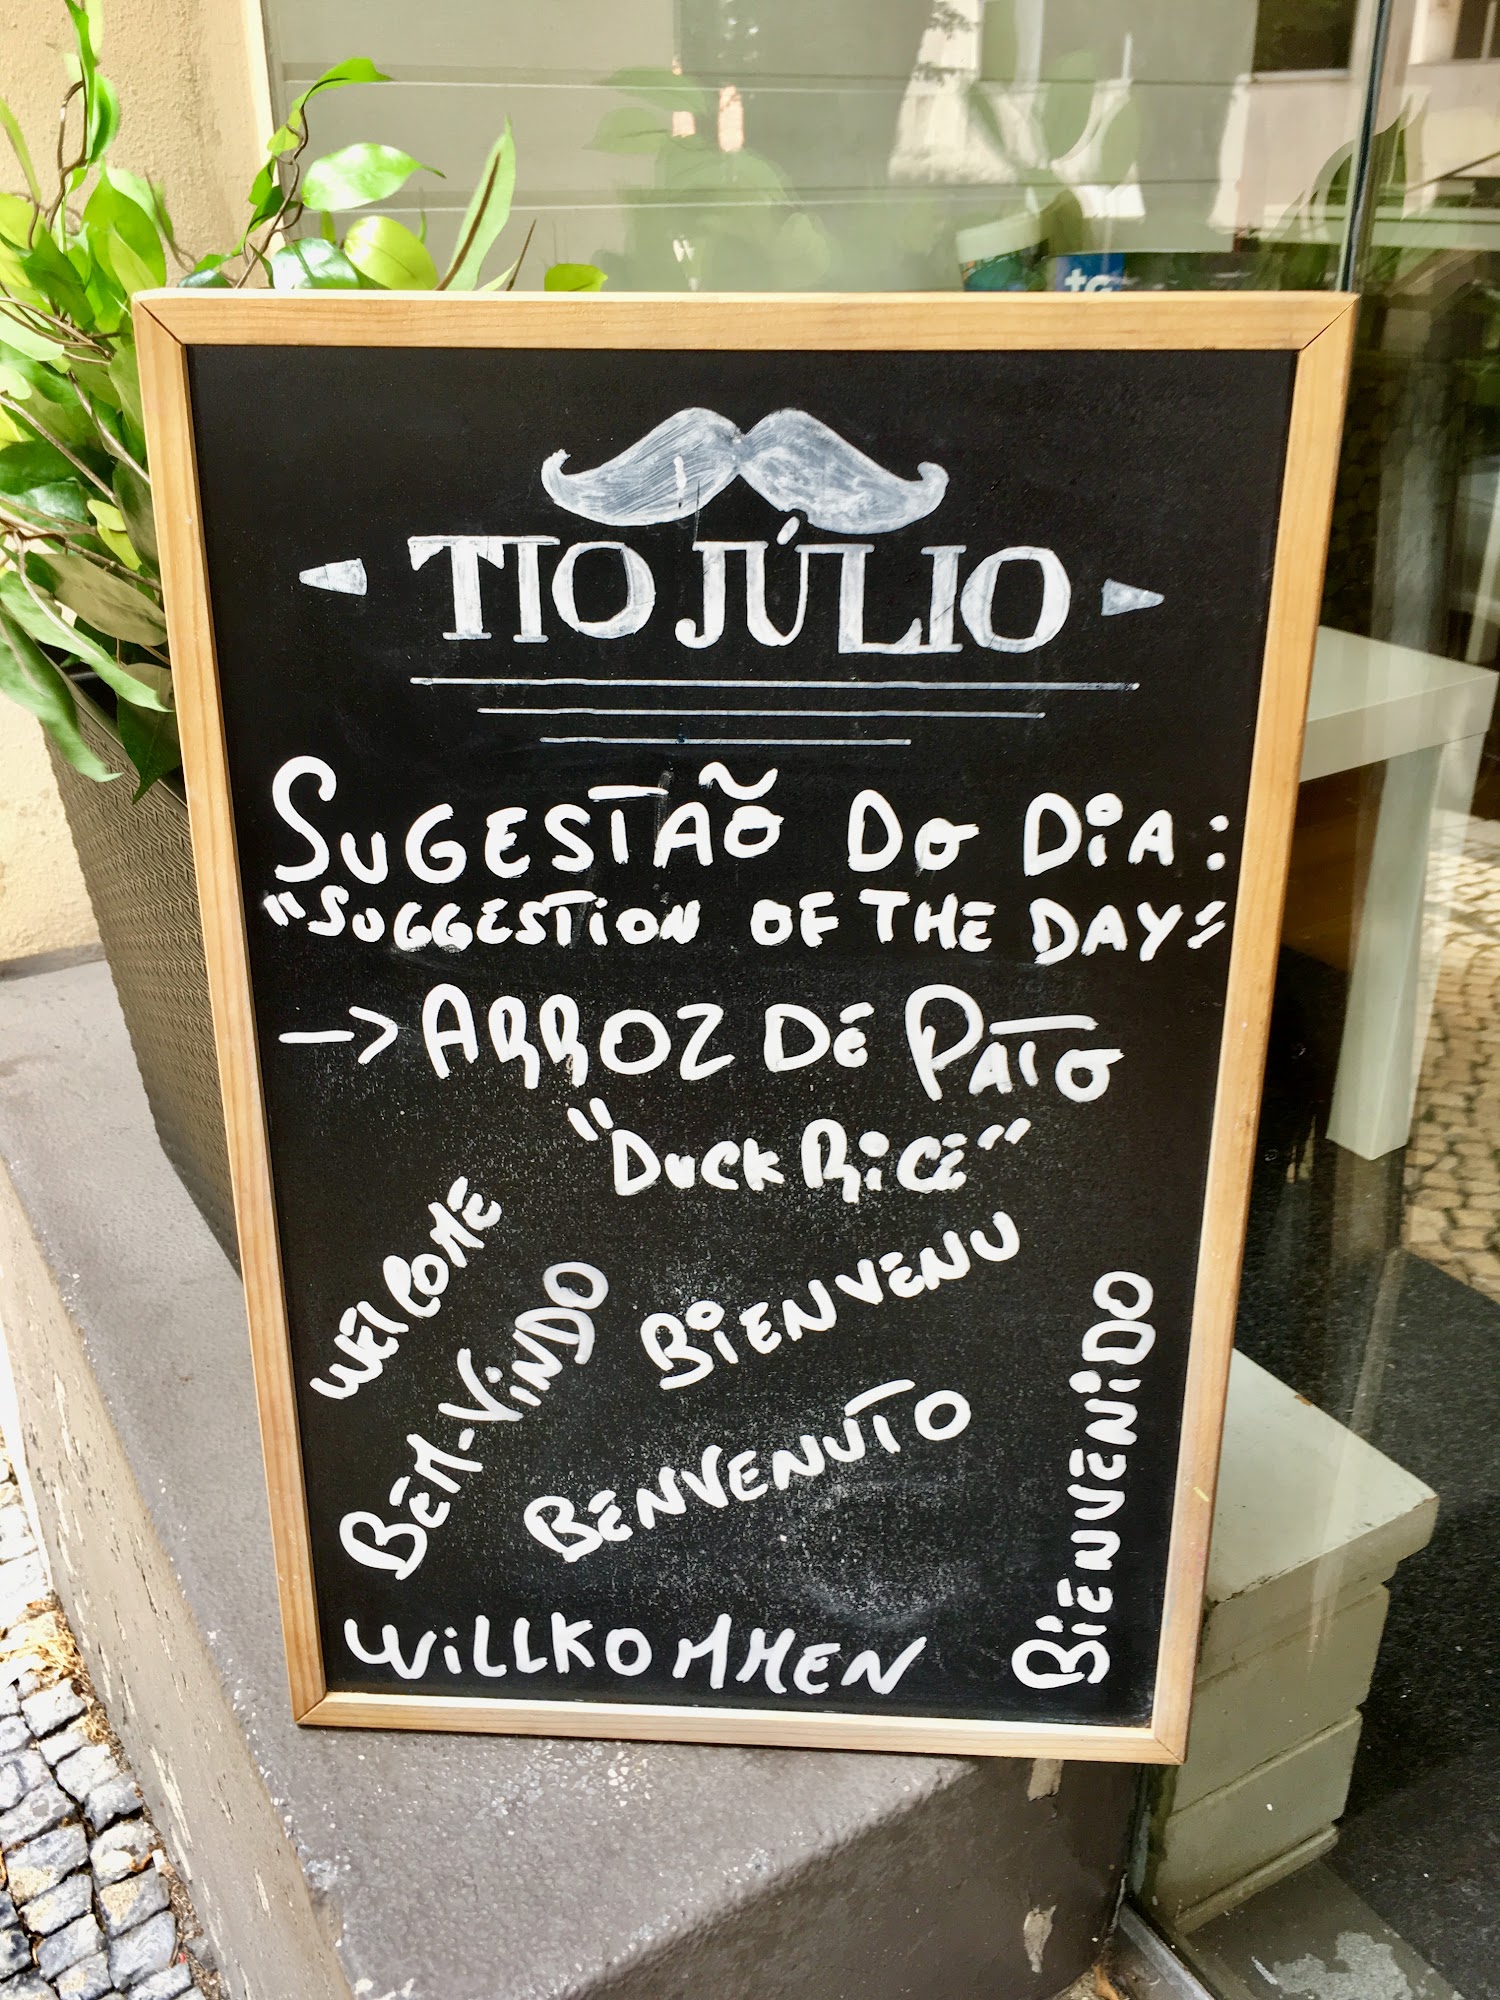 TIO JÚLIO
SUGESTÃO DO DIA:
"SUGGESTION OF THE DAY"
→ ARROZ DE PATO
"DUCK RICE"
WELCOME
BEM-VINDO
BIENVENU
BENVENUTO
BIENVENIDO
WILLKOMMEN